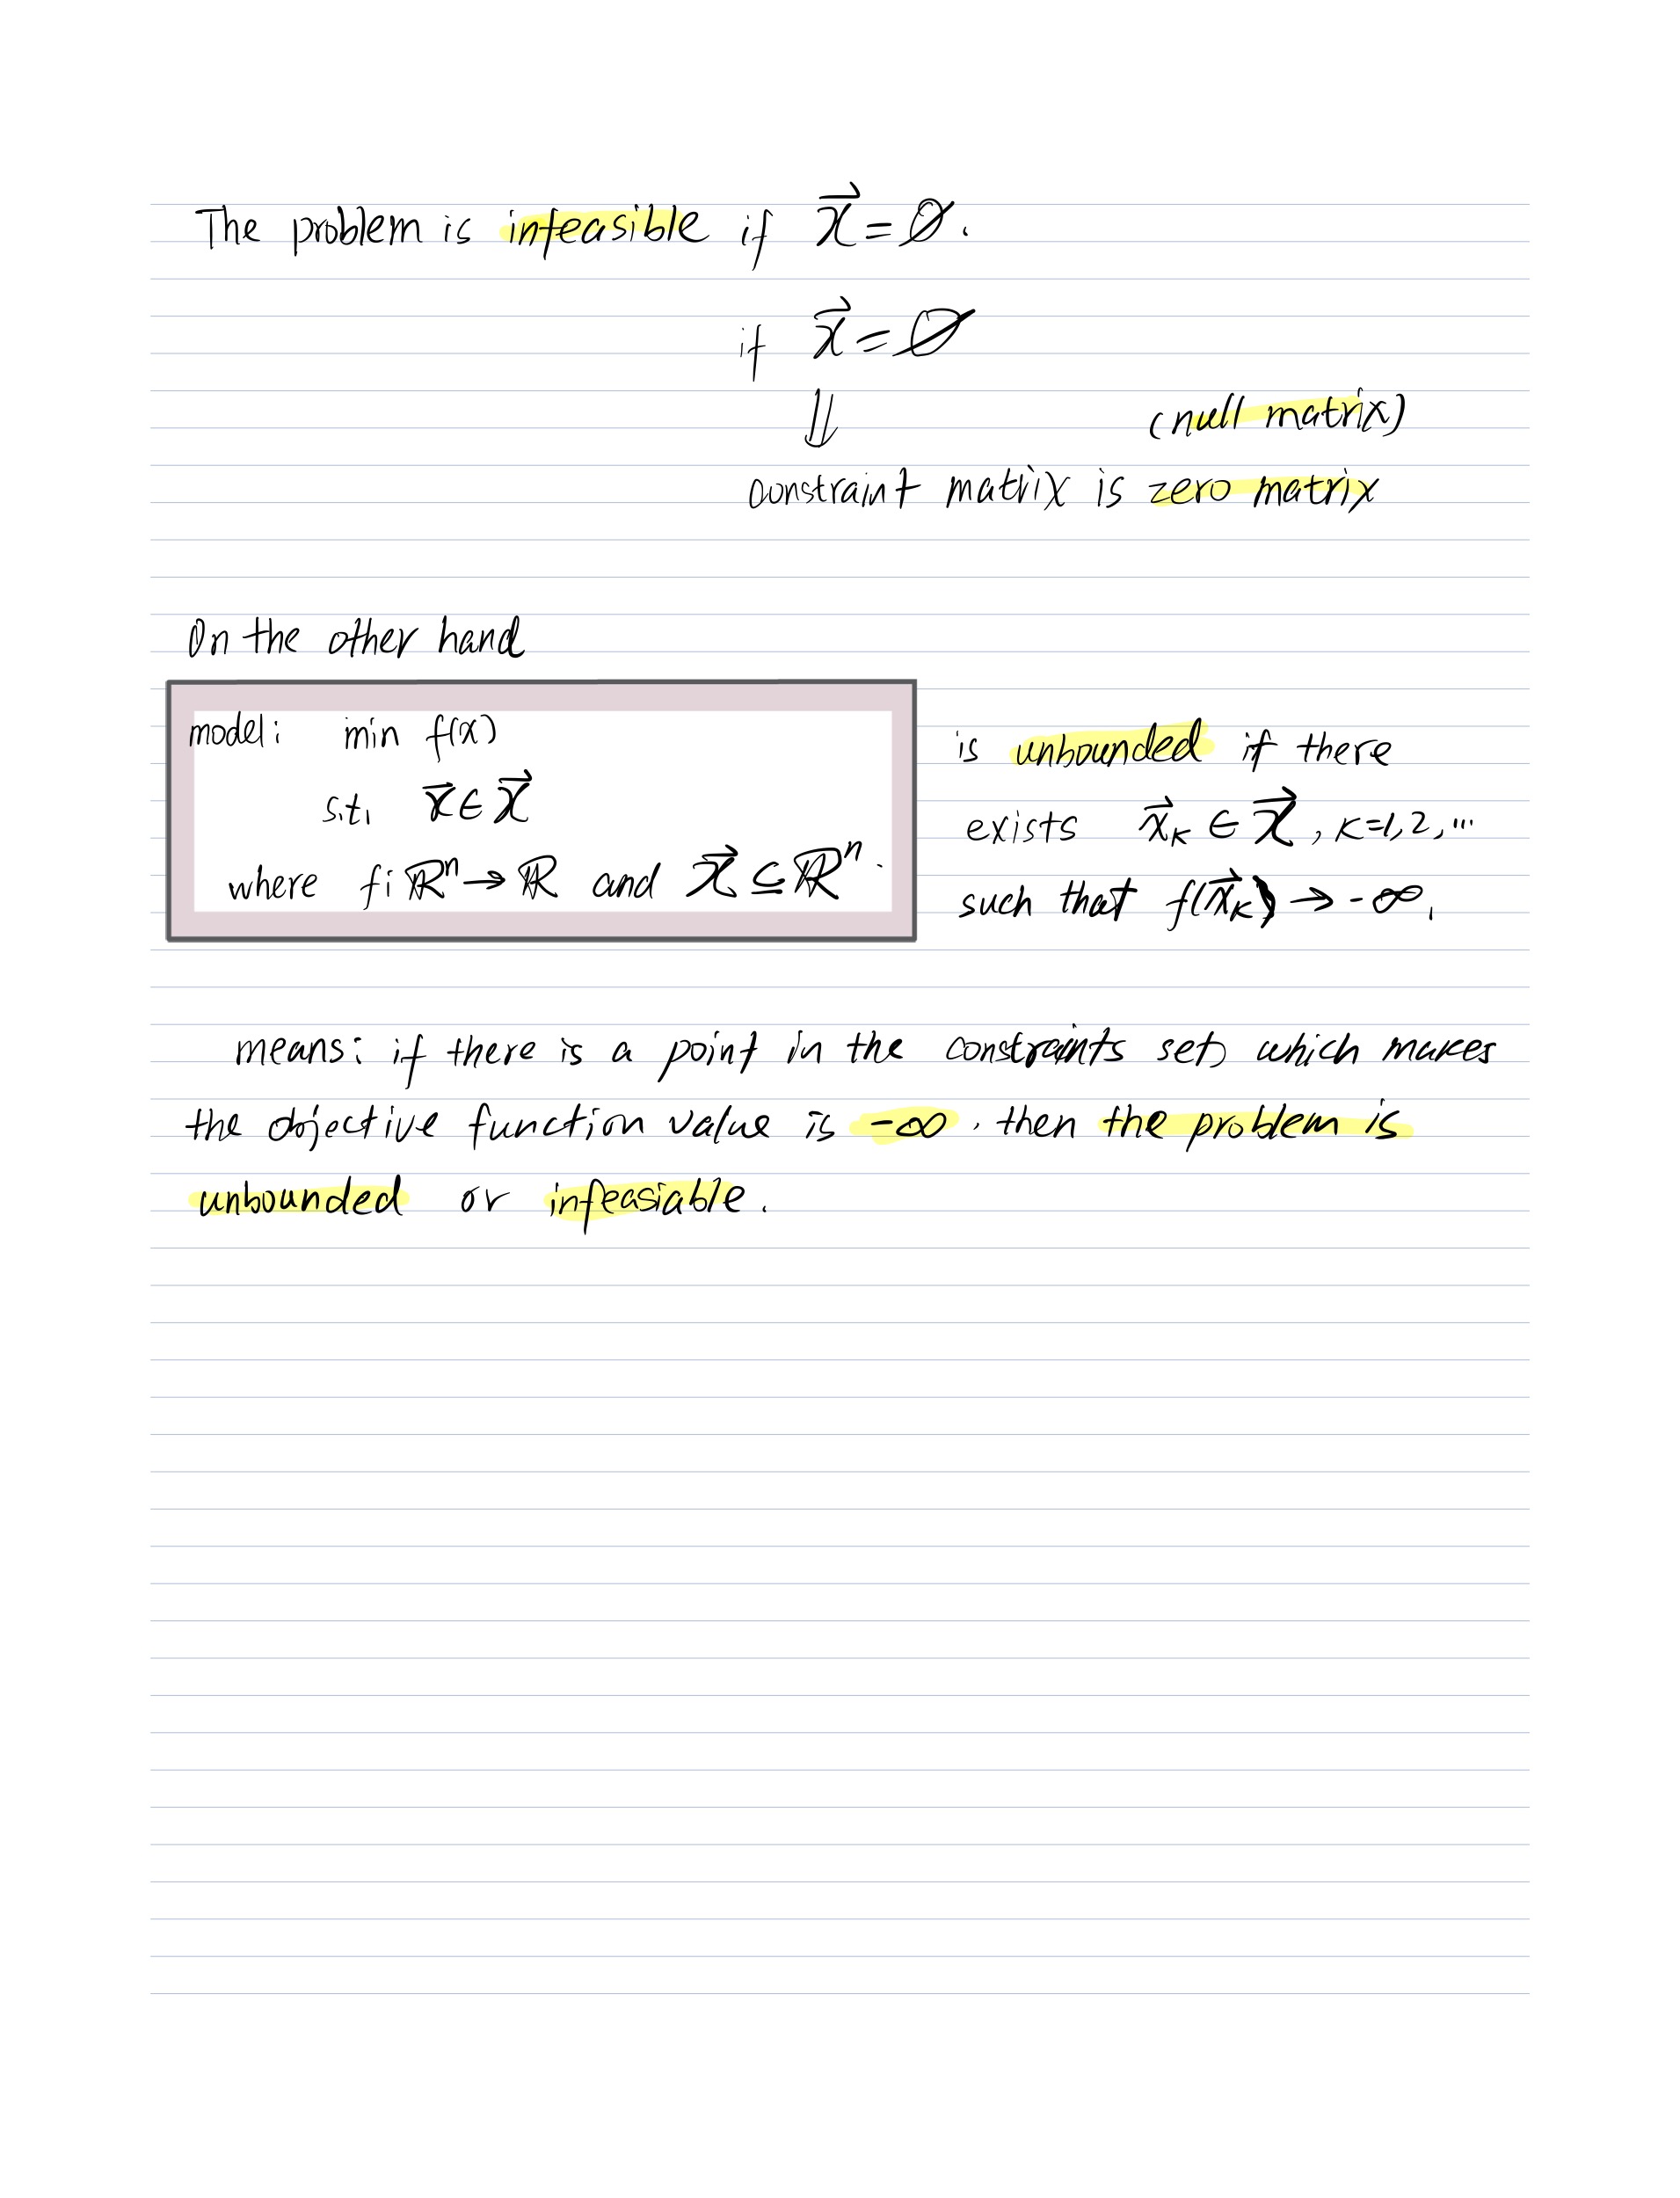 The problem is infeasible if 𝒳⃗ = ∅.
if 𝒳⃗ = ∅
⇓
(null matrix)
constraint matrix is zero matrix
On the other hand
model: min f(x)
s.t. x⃗ ∈ 𝒳⃗
where f: ℝⁿ → ℝ and 𝒳⃗ ⊆ ℝⁿ.
is unbounded if there
exists x⃗ₖ ∈ 𝒳⃗, k=1, 2, ...
such that f(x⃗ₖ) → -∞.
means: if there is a point in the constraints set, which makes
the objective function value is -∞, then the problem is
unbounded or infeasiable.